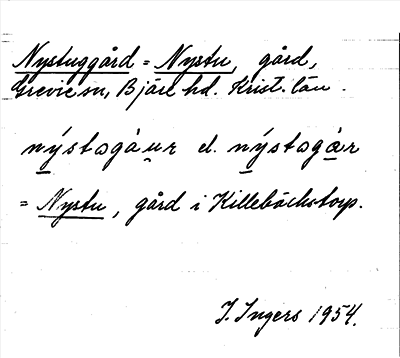 Nystuggård = Nystu, gård,
Grevie sn, Bjäre hd. Krist. län.
nýstogáur el. nýstogár
= Nystu, gård i Killebäckstorp.
I. Ingers 1954.